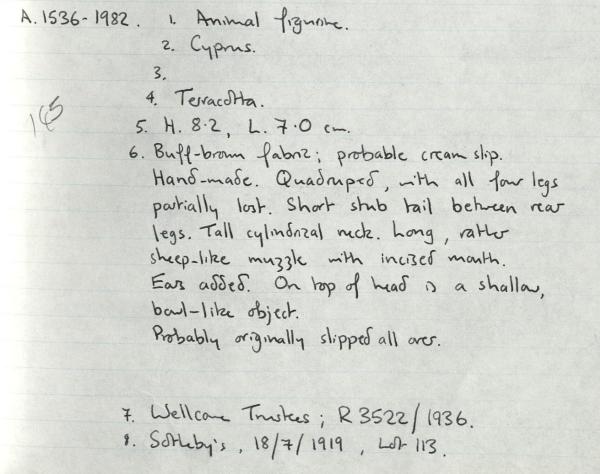 A.1536-1982. 1. Animal figurine.
2. Cyprus.
3.
4. Terracotta.
165
5. H. 8.2, L. 7.0 cm.
6. Buff-brown fabric; probable cream slip.
Hand-made. Quadruped, with all four legs
partially lost. Short stub tail between rear
legs. Tall cylindrical neck. Long, rather
sheep-like muzzle with incised mouth.
Ears added. On top of head is a shallow,
bowl-like object.
Probably originally slipped all over.
7. Wellcome Trustees; R 3522/1936.
8. Sotheby's, 18/7/1919, Lot 113.